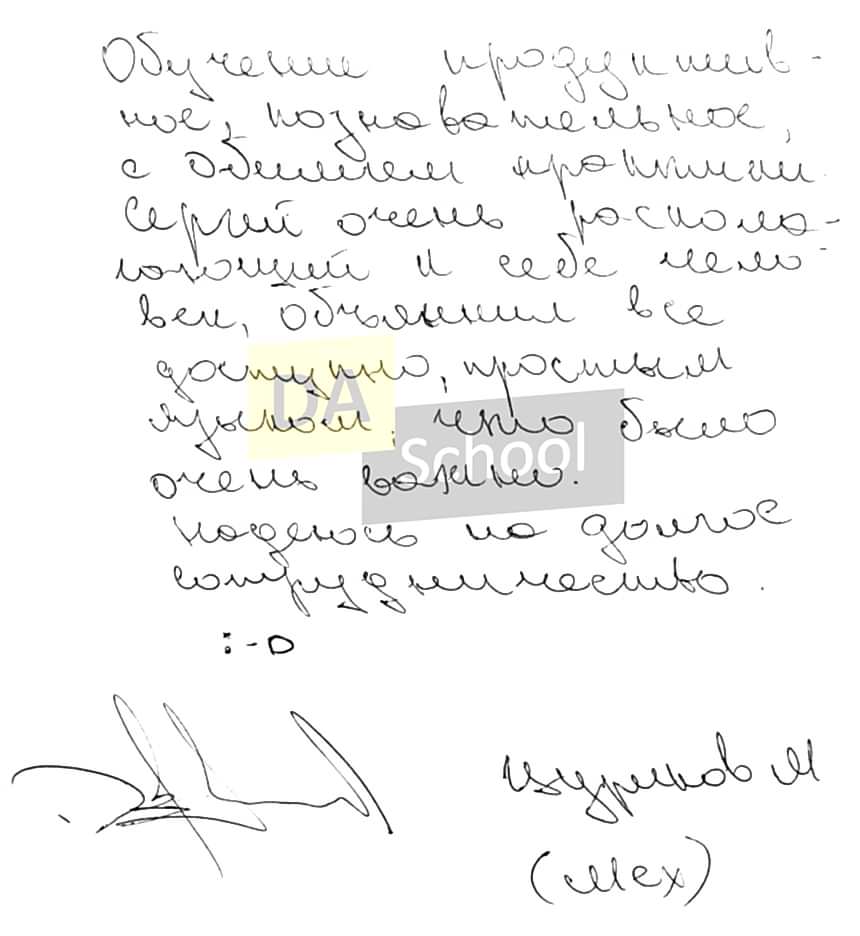 Обучение продуктив-
ное, познавательное,
с обилием практики.
Сергей очень распола-
гающий к себе чело-
век, объяснил все
доступно, простым
языком, что было
очень важно.
Надеюсь на долгое
сотрудничество.
:-D
DA
School
Цуриков М
(Мех)